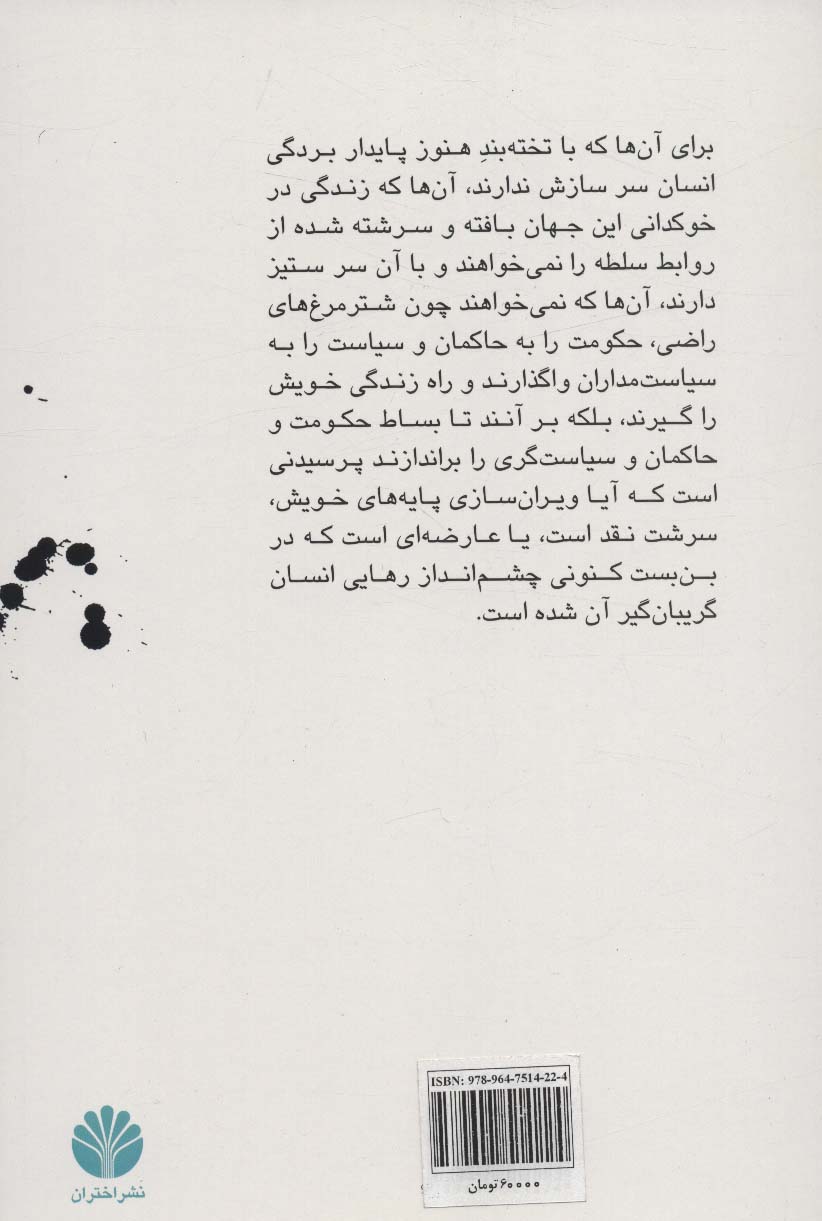 برای آن‌ها که با تخته‌بندِ هنوز پایدار بردگی
انسان سر سازش ندارند، آن‌ها که زندگی در
خوکدانی این جهان بافته و سرشته شده از
روابط سلطه را نمی‌خواهند و با آن سر ستیز
دارند، آن‌ها که نمی‌خواهند چون شترمرغ‌های
راضی، حکومت را به حاکمان و سیاست را به
سیاست‌مداران واگذارند و راه زندگی خویش
را گیرند، بلکه بر آنند تا بساط حکومت و
حاکمان و سیاست‌گری را براندازند پرسیدنی
است که آیا ویران‌سازی پایه‌های خویش،
سرشت نقد است، یا عارضه‌ای است که در
بن‌بست کنونی چشم‌انداز رهایی انسان
گریبان‌گیر آن شده است.
ISBN: 978-964-7514-22-4
۶۰۰۰۰ تومان
نشر اختران